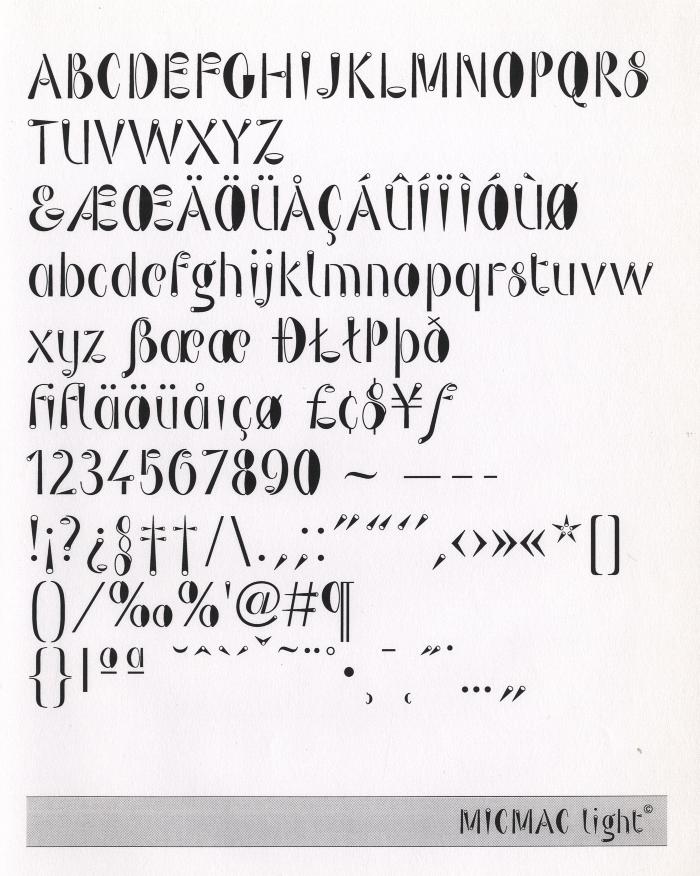 ABCDEFGHIJKLMNOPQRS
TUVWXYZ
&ÆŒÄÖÜÅÇÁÛÍÏÌÓÙØ
abcdefghijklmnopqrstuvw
xyz ßœæ ÐŁłÞþð
fifläöüåıçø £¢$¥ƒ
1234567890 ~ —--
!¡?¿§‡†/\.,,;:
‹›»«*[]
()/‰%'@#¶
{}|ºª
•
…
MICMAC light©